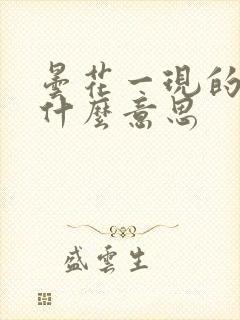 曇花一現的
什麼意思
盛雲生